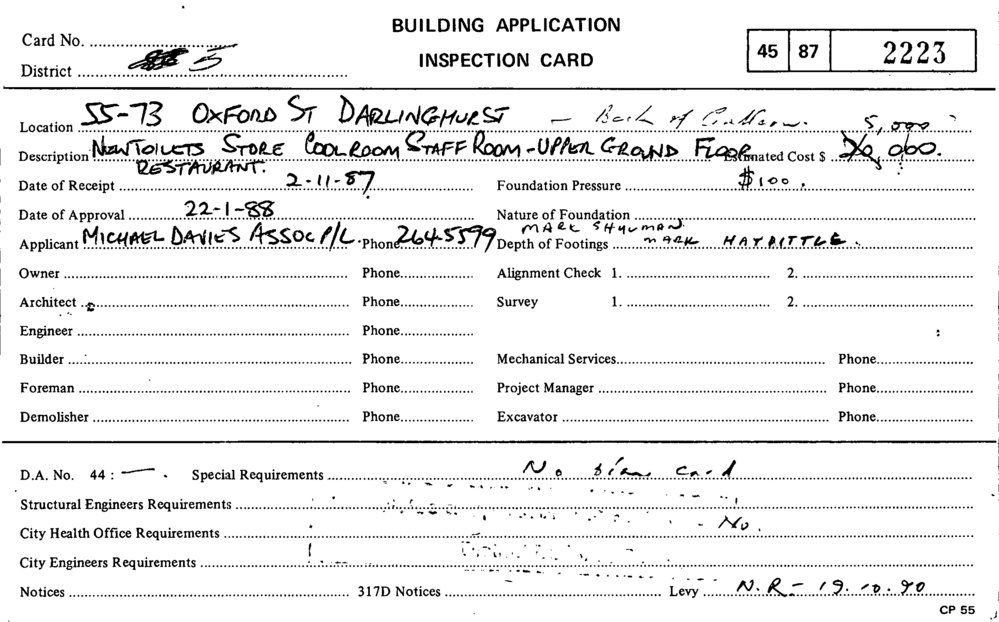 BUILDING APPLICATION
INSPECTION CARD
Card No.
District 5
45 87 2223
Location 55-73 OXFORD ST DARLINGHURST - Back of
5,000
Description NEW TOILETS STORE COOLROOM STAFF ROOM - UPPER GROUND FLOOR Estimated Cost $ 20,000.
RESTAURANT.
Date of Receipt 2-11-87 Foundation Pressure $100.
Date of Approval 22-1-88 Nature of Foundation
MARK
Applicant MICHAEL DAVIES ASSOC P/L. Phone 264-5599 Depth of Footings MARK
Owner Phone Alignment Check 1. 2.
Architect Phone Survey 1. 2.
Engineer Phone
Builder Phone Mechanical Services Phone
Foreman Phone Project Manager Phone
Demolisher Phone Excavator Phone
D.A. No. 44 : — . Special Requirements No card
Structural Engineers Requirements
City Health Office Requirements No.
City Engineers Requirements
Notices 317D Notices Levy N.R - 19.10.90
CP 55